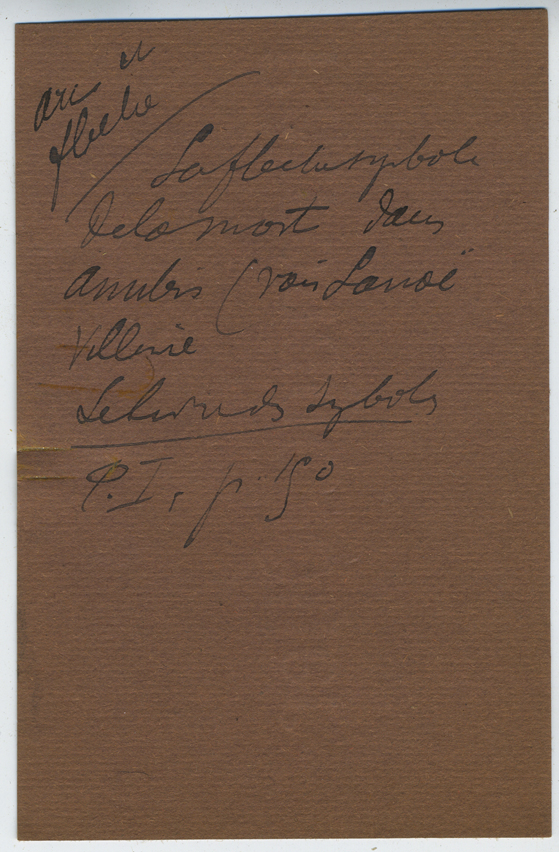 arc et
flèche
La flèche symbole
de la mort dans
Anubis (voir Lanoë
Villène
Le livre des symboles
P. I, p. 150